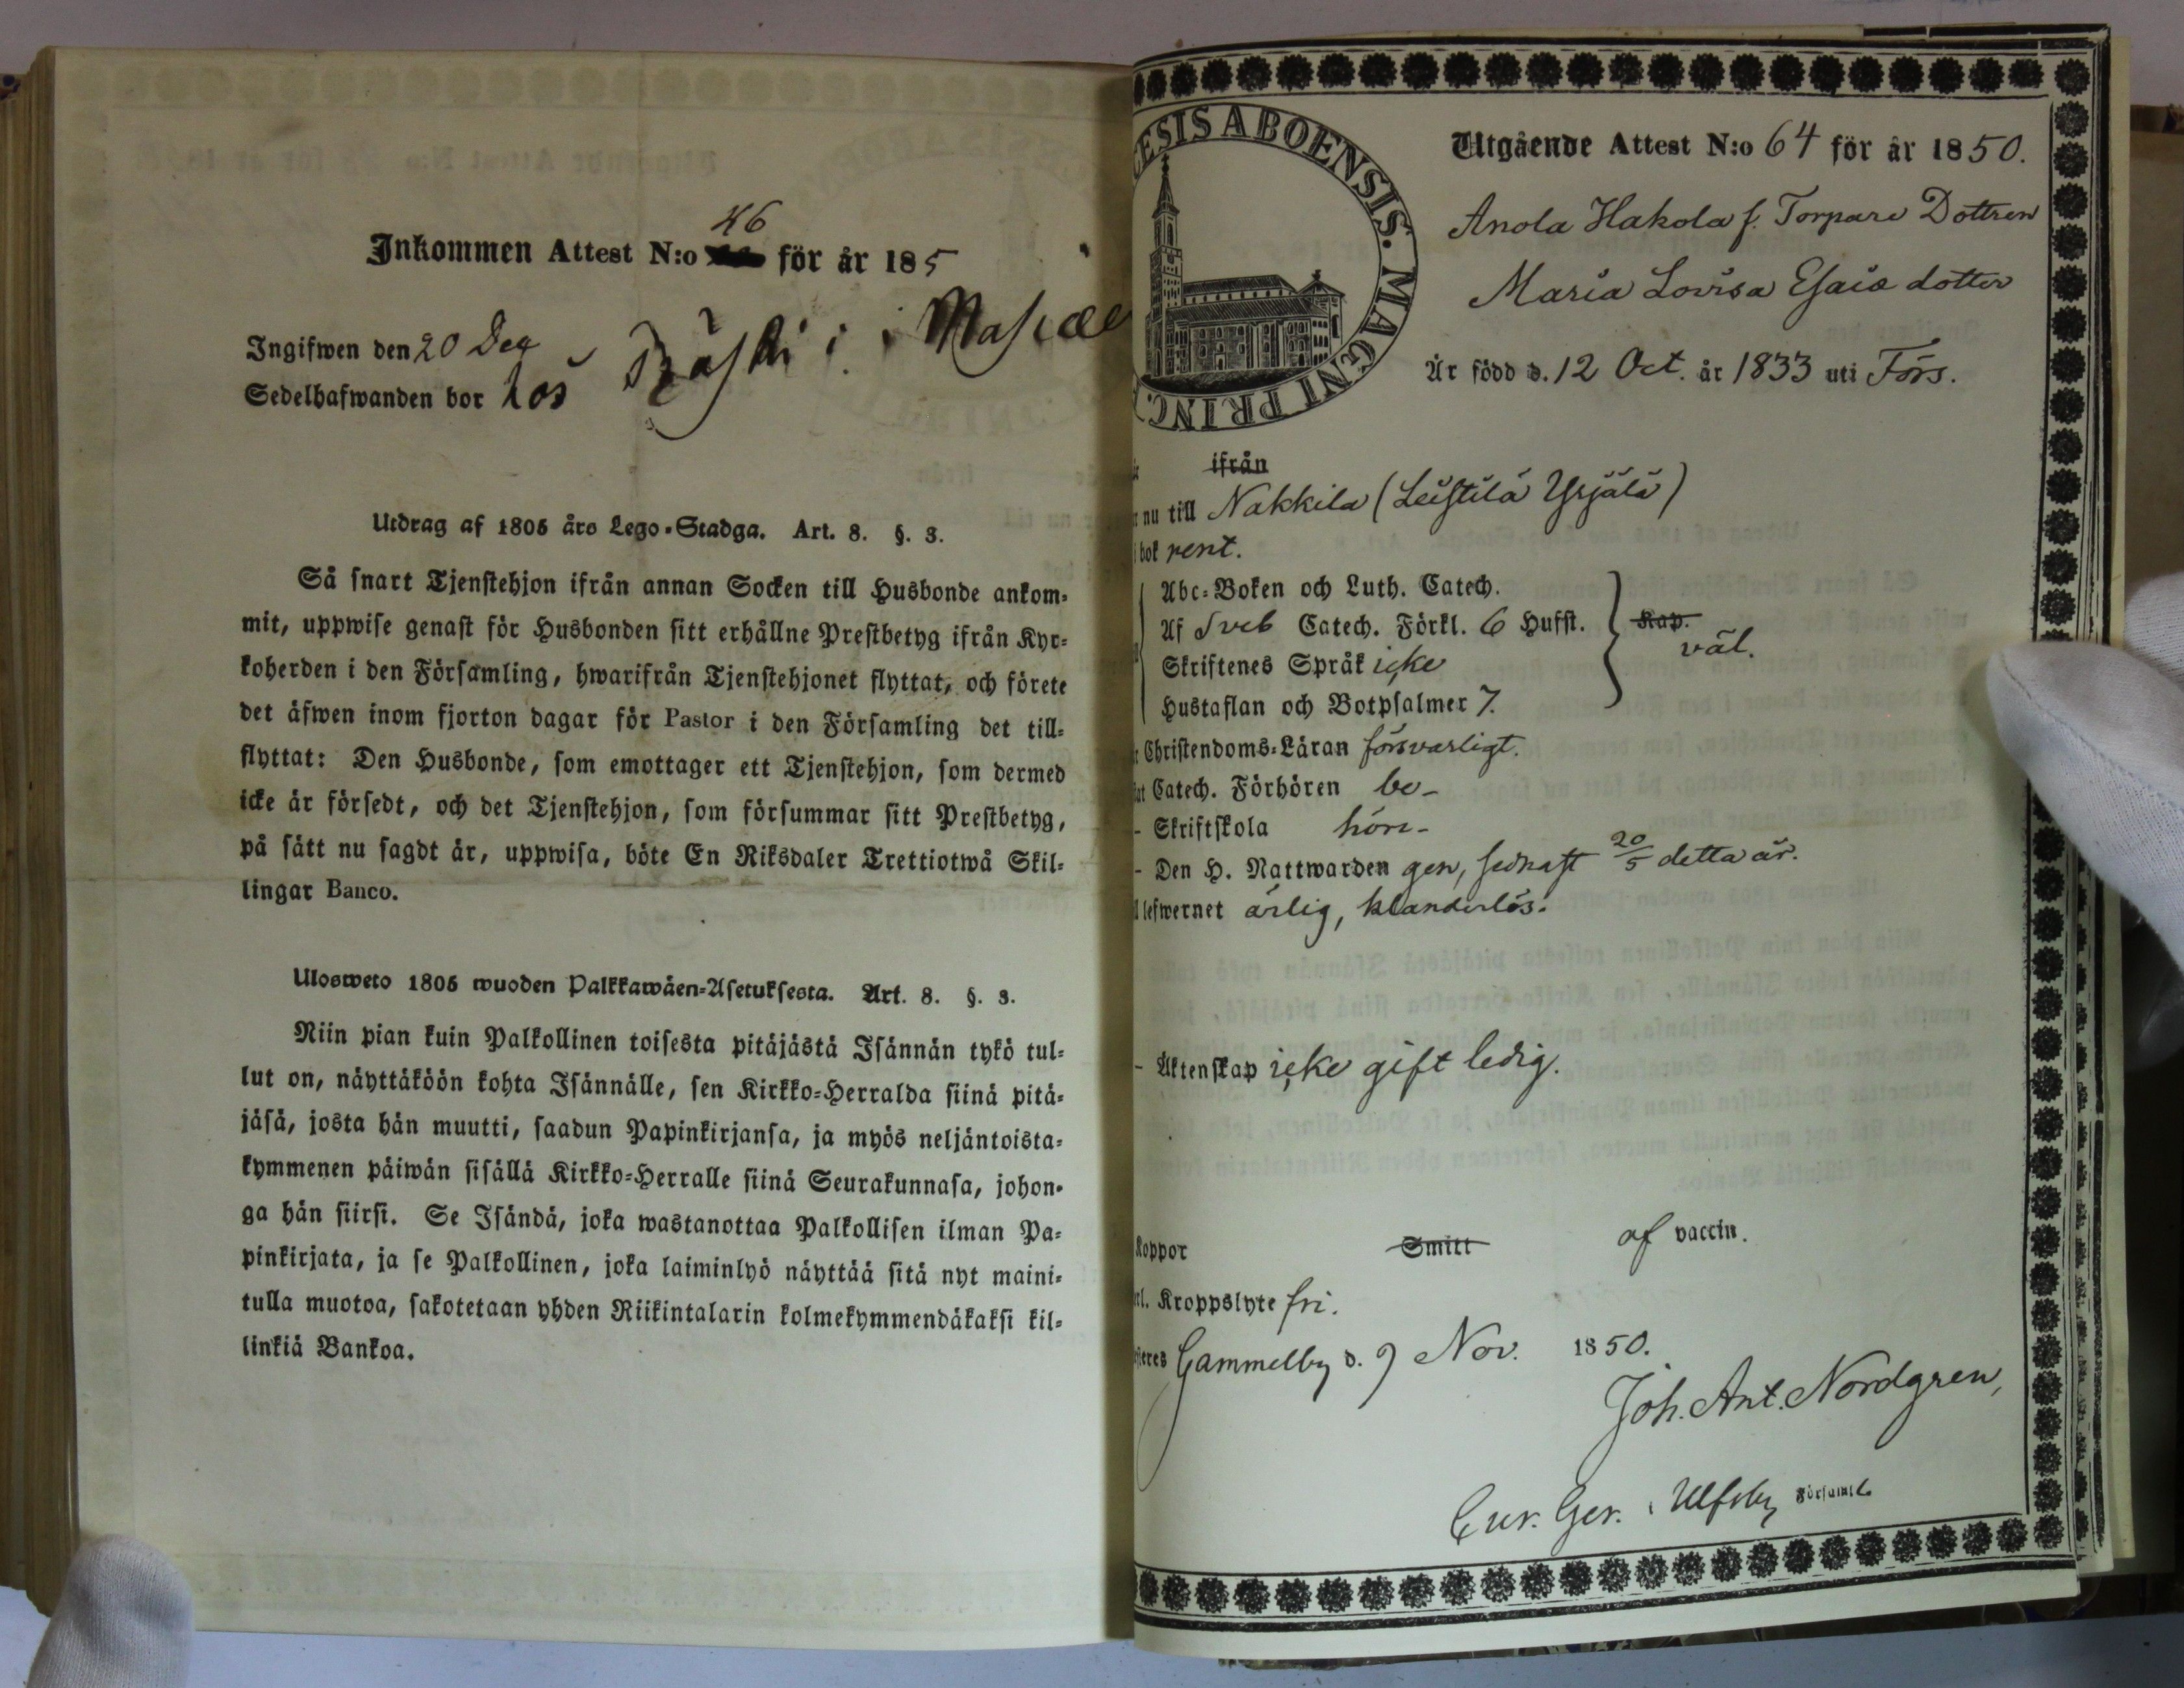 46
Inkommen Attest N:o för år 185
Ingifwen den 20 Dec
Sedelhafwanden bor hos
Utdrag af 1805 års Lego-Stadga. Art. 8. §. 3.
Så snart Tjenstehjon ifrån annan Socken till Husbonde ankom-
mit, uppwise genast för Husbonden sitt erhållne Prestbetyg ifrån Kyr-
koherden i den Församling, hwarifrån Tjenstehjonet flyttat, och förete
det äfwen inom fjorton dagar för Pastor i den Församling det till-
flyttat: Den Husbonde, som emottager ett Tjenstehjon, som dermed
icke är försedt, och det Tjenstehjon, som försummar sitt Prestbetyg,
på sätt nu sagdt är, uppwisa, böte En Riksdaler Trettiotwå Skil-
lingar Banco.
Ulosweto 1805 wuoden Palkkawäen-Asetuksesta. Art. 8. §. 3.
Niin pian kuin Palkollinen toisesta pitäjästä Isännän tykö tul-
lut on, näyttäköön kohta Isännälle, sen Kirkko-Herralda siinä pitä-
jäsä, josta hän muutti, saadun Papinkirjansa, ja myös neljäntoista-
kymmenen päiwän sisällä Kirkko-Herralle siinä Seurakunnasa, johon-
ga hän siirsi. Se Isändä, joka wastanottaa Palkollisen ilman Pa-
pinkirjata, ja se Palkollinen, joka laiminlyö näyttää sitä nyt maini-
tulla muotoa, sakotetaan yhden Riikintalarin kolmekymmendäkaksi kil-
linkiä Bankoa.
ESIS ABOENSIS. MAGNI PRINC.
Utgående Attest N:o 64 för år 1850.
Anola Hakola f. Torpare Dottren
Maria Lovisa Esaiæ dotter
Är född d. 12 Oct. år 1833 uti Förs.
ifrån
nu till Nakkila (Leistilä Yrjälä)
bok rent.
Abc-Boken och Luth. Catech.
Af Sveb Catech. Förkl. 6 Hufst. Kap. väl.
Skriftenes Språk icke
Hustaflan och Botpsalmer 7.
Christendoms-Läran försvarligt.
Catech. Förhören be-
- Skriftskola hörl-
- Den H. Nattwarden gen, sednast 20/5 detta år.
lefwernet ärlig, klanderlös.
- Äktenskap icke gift ledig.
Koppor Smitt af vaccin.
Kroppslyte fri.
Gammelby d. 9 Nov. 1850.
Joh. Ant. Nordgren,
Cur. Ger. i Ulfsby Församl.